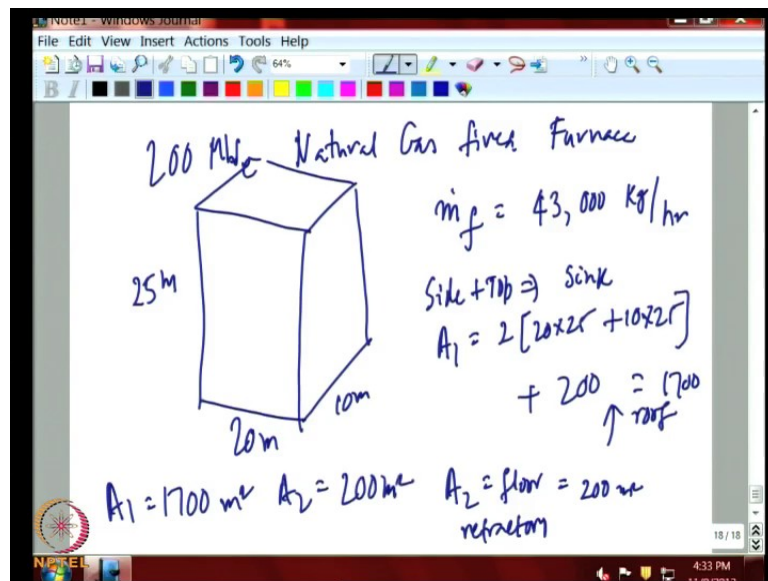 Note1 - Windows Journal
File Edit View Insert Actions Tools Help
64%
B I
200 MWe Natural Gas fired Furnace
ṁf = 43,000 Kg/hr
25m
Side + Top ⇒ Sink
A1 = 2[20x25 + 10x25]
+ 200 = 1700
↑ roof
10m
20m
A1 = 1700 m² A2 = 200 m² A2 = floor = 200 m²
refractory
18 / 18
NPTEL
4:33 PM